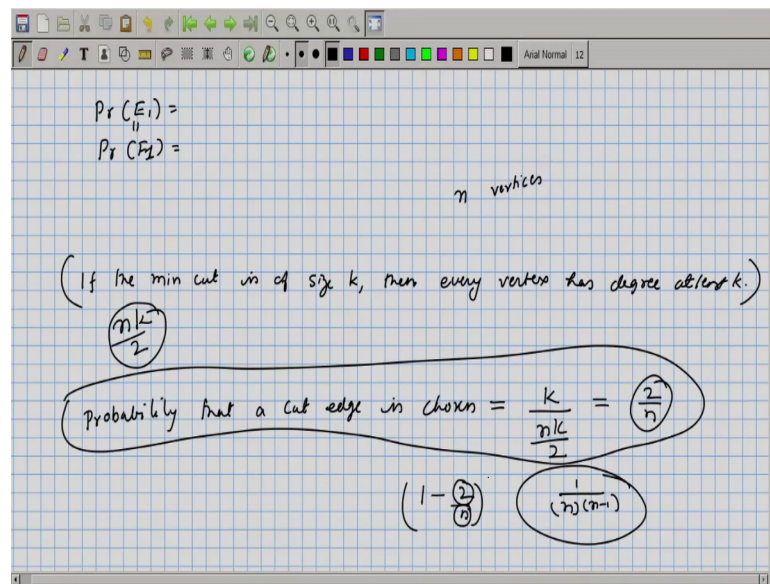 T
Arial Normal 12
Pr (E1) =
"
Pr (F1) =
n vertices
(If the min cut is of size k, then every vertex has degree atleast k.)
nk
2
Probability that a cut edge is chosen = k / nk/2 = 2/n
(1 - 2/n) 1/(n)(n-1)